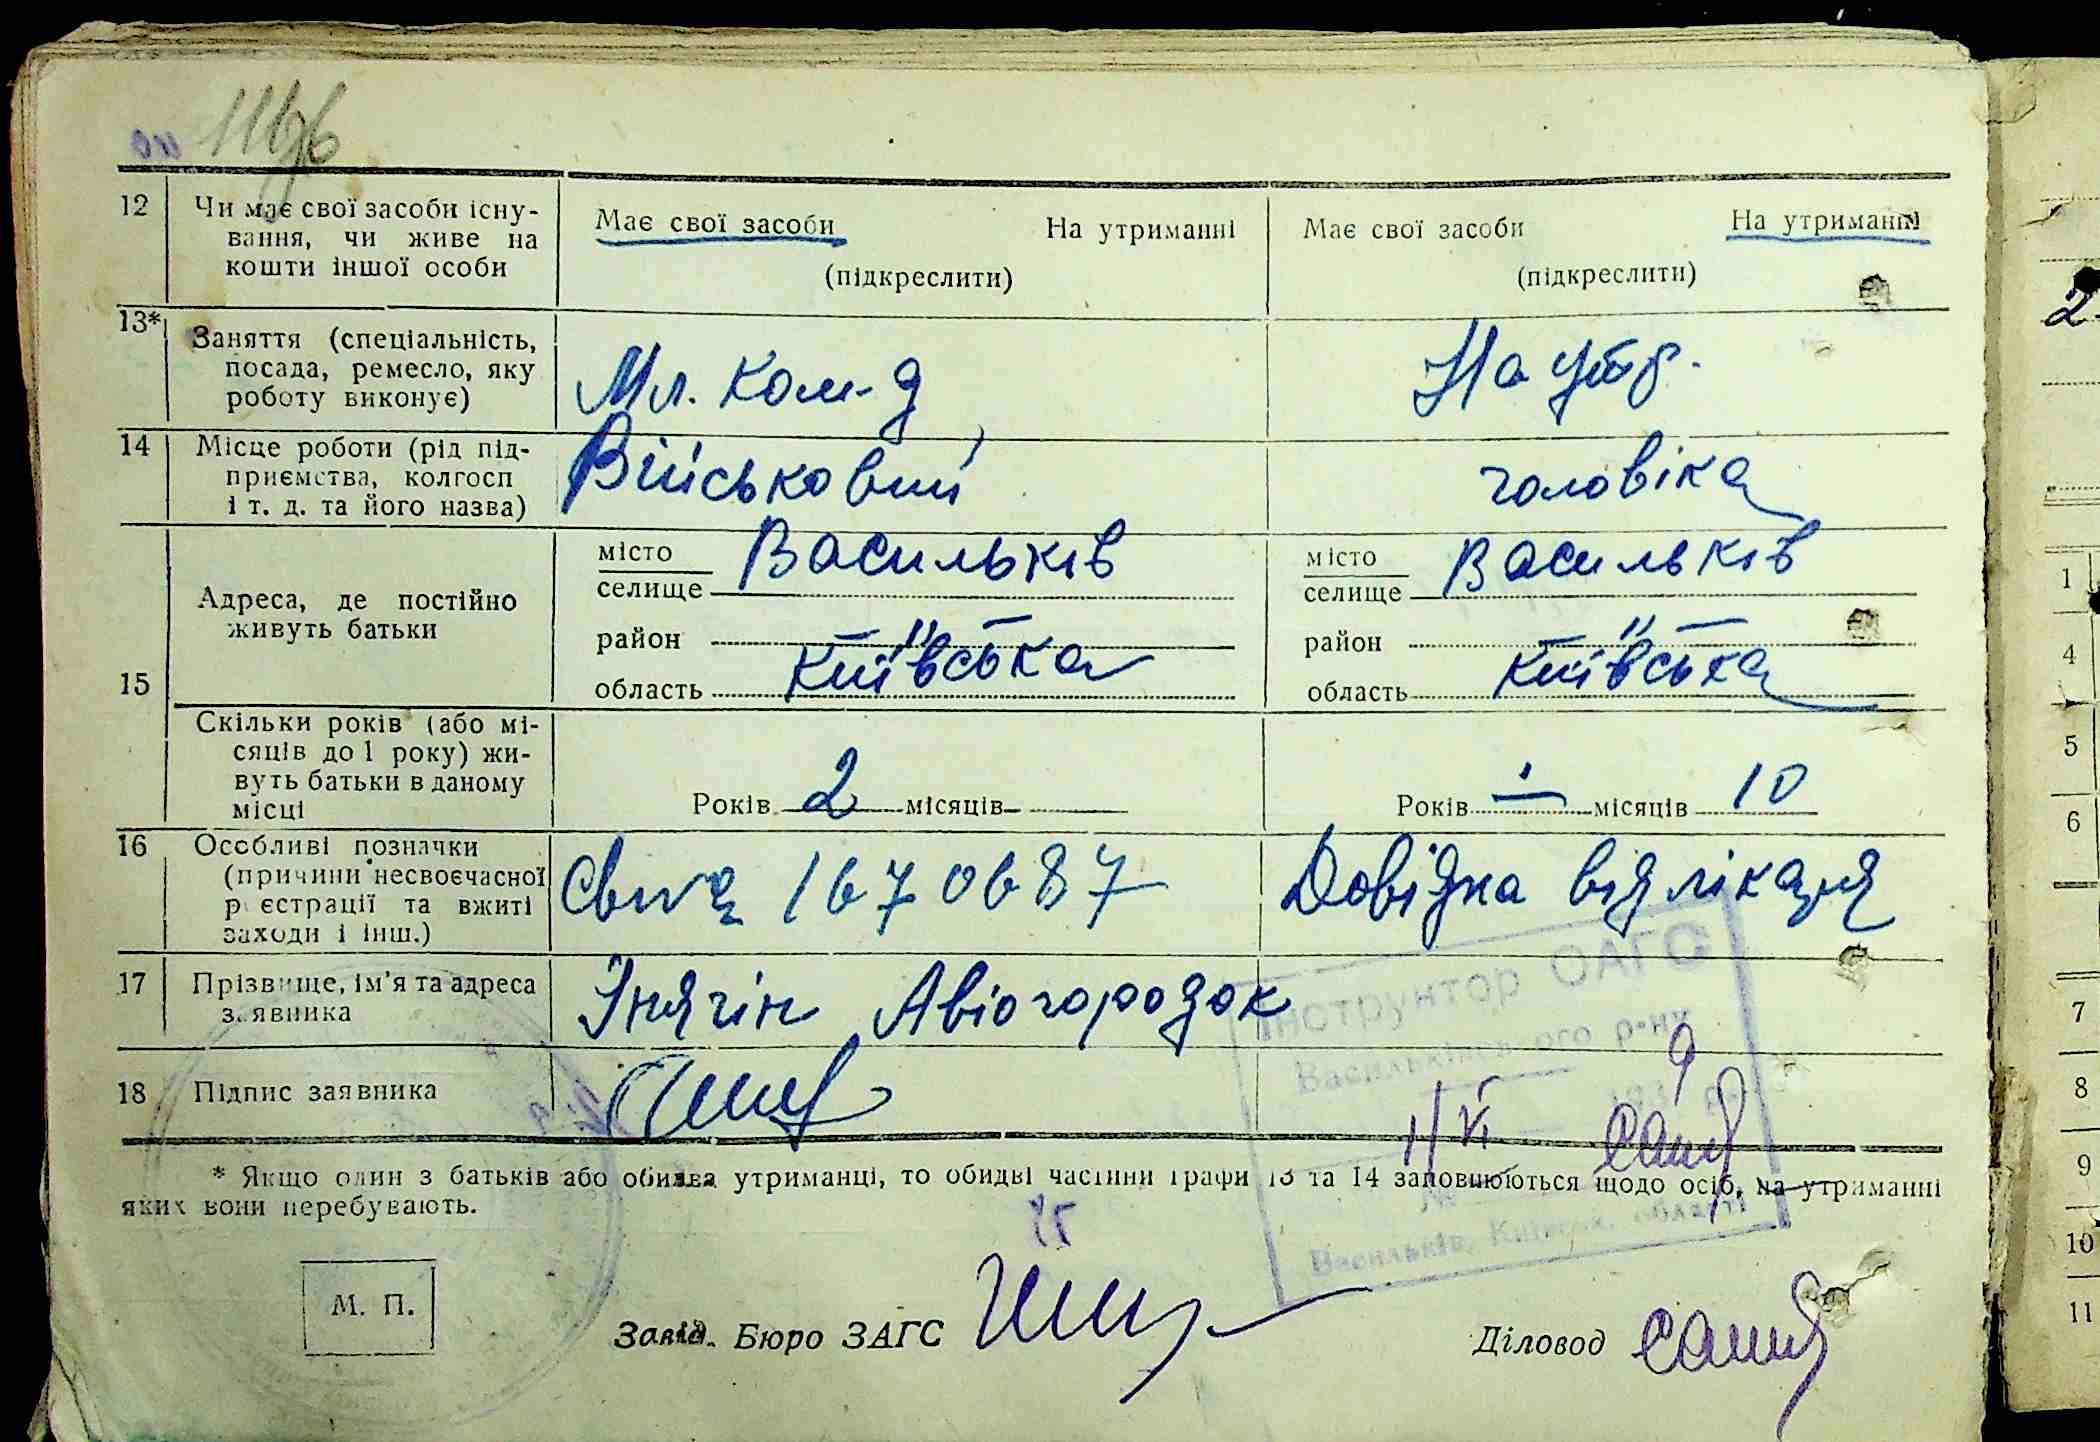 12 Чи має свої засоби існу- Має свої засоби На утриманні Має свої засоби На утриманні
вання, чи живе на
кошти іншої особи (підкреслити) (підкреслити)
13* Заняття (спеціальність,
посада, ремесло, яку Мл. Ком-д На утр.
роботу виконує)
14 Місце роботи (рід під- Військовий чоловіка
приємства, колгосп
і т. д. та його назва)
місто Васильків місто Васильків
селище селище
Адреса, де постійно
живуть батьки район — " — район — " —
15 область Київська область Київська
Скільки років (або мі-
сяців до 1 року) жи-
вуть батьки в даному
місці Років 2 місяців Років — місяців 10
16 Особливі позначки
(причини несвоєчасної 1670687 Довідка від лікаря
реєстрації та вжиті
заходи і інш.)
17 Прізвище, ім'я та адреса Інягін Авіогородок
заявника
Інструктор ОАГС
Васильківського р-ну
18 Підпис заявника
1/VI 9
* Якщо один з батьків або обидва утриманці, то обидві частини графи 13 та 14 заповнюються щодо осіб, на утриманні
яких вони перебувають.
Васильків, Київськ. області
М. П.
Завід. Бюро ЗАГС Діловод
2
1
4
5
6
7
8
9
10
11